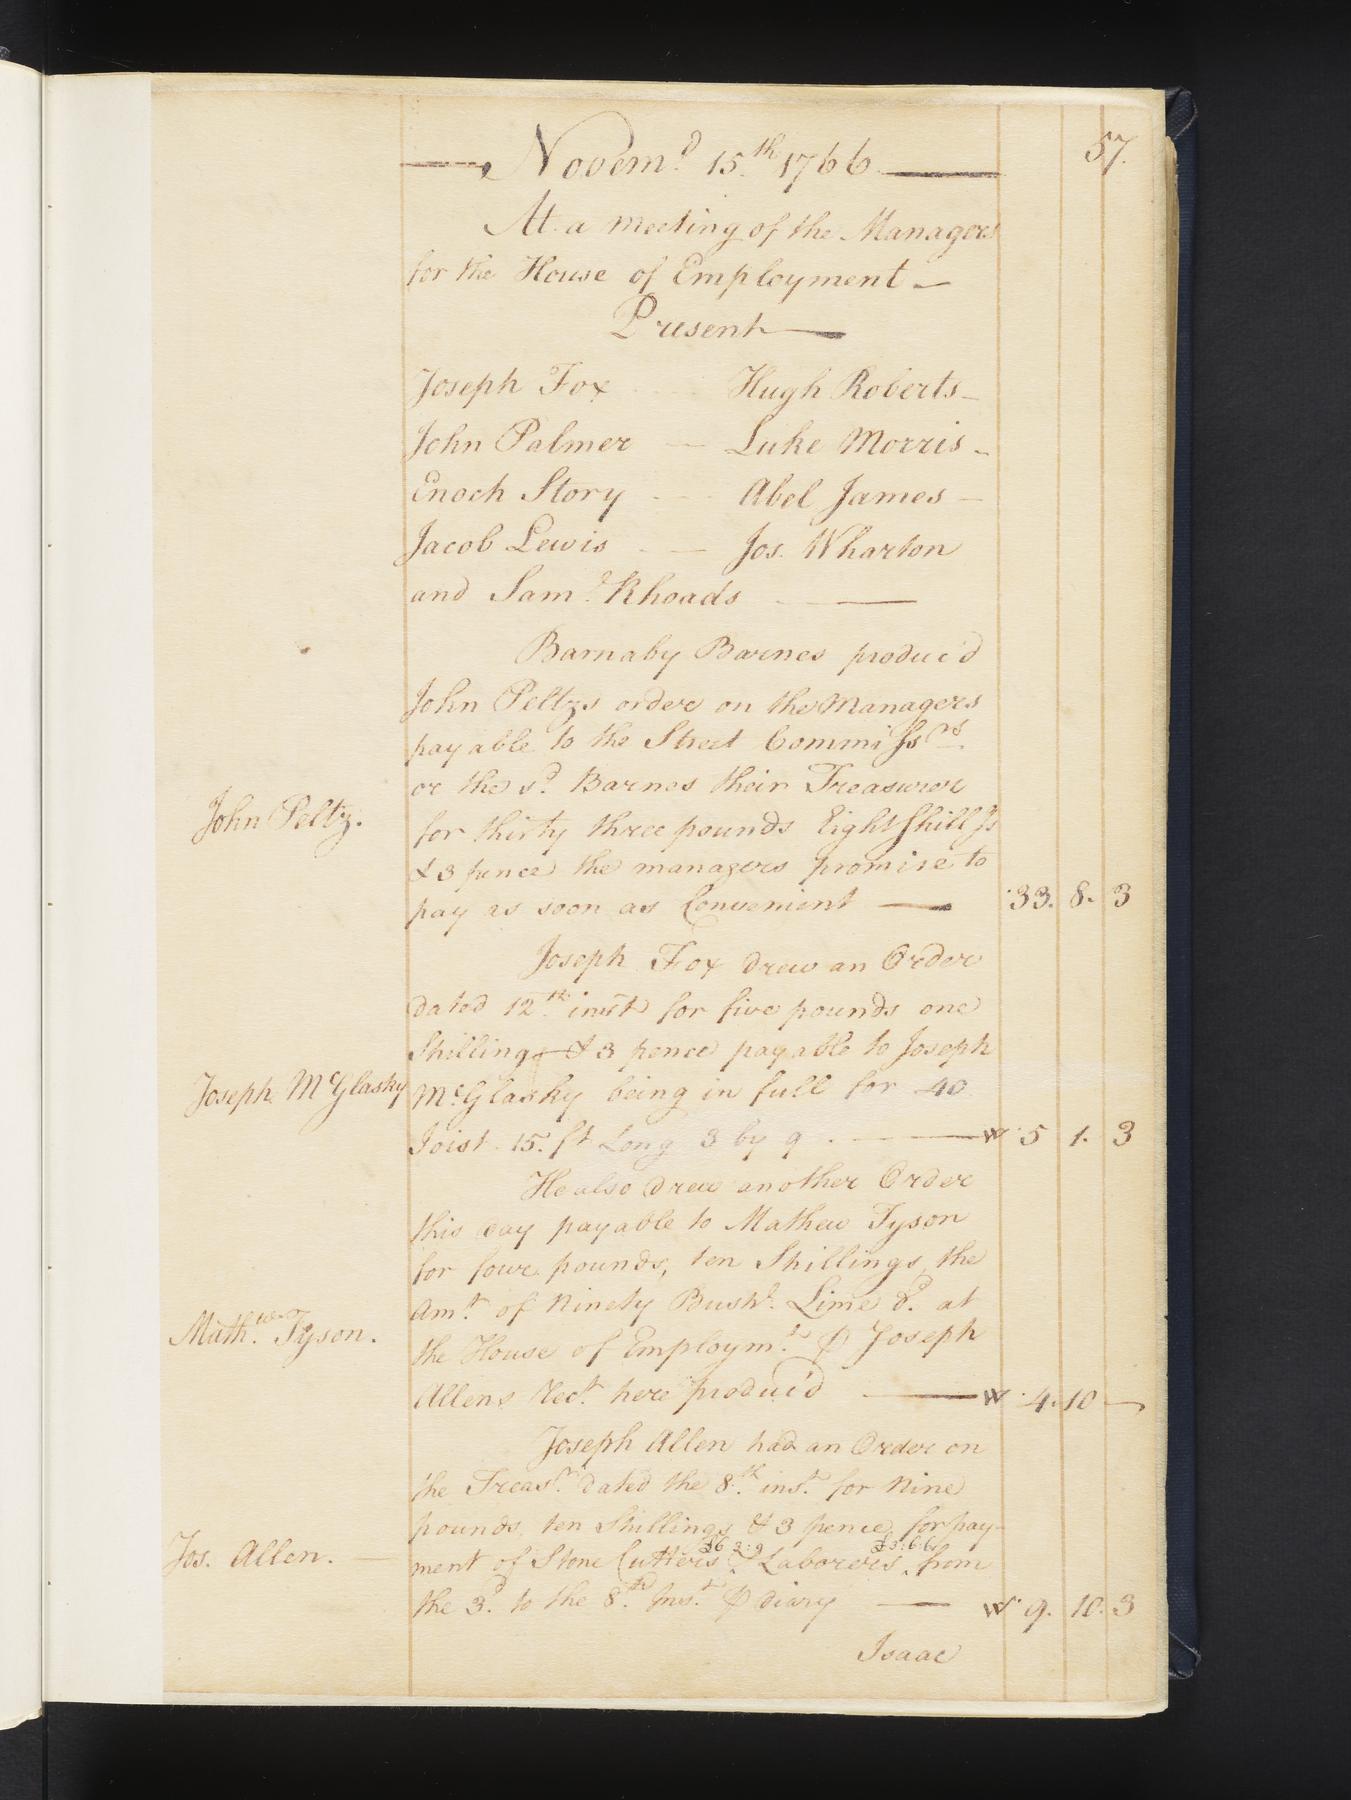 57.
Novem.r 15.th 1766
At a meeting of the Managers
for the House of Employment
Present
Joseph Fox Hugh Roberts
John Palmer Luke Morris
Enoch Story Abel James
Jacob Lewis Jos. Wharton
and Sam.l Rhoads
Barnaby Barnes produc'd
John Peltzs order on the Managers
payable to the Street Commissrs.
or the s.d Barnes their Treasurer
John Peltz.
for thirty three pounds Eight Shillgs
& 3 pence the managers promise to
pay as soon as Convenient 33. 8. 3
Joseph Fox drew an Order
dated 12.th inst for five pounds one
Shilling & 3 pence payable to Joseph
Joseph McGlasky McGlasky being in full for 40
Joist 15. ft Long 3 by 9 W 5 1. 3
He also drew another Order
this day payable to Mathew Tyson
for four pounds, ten Shillings, the
Am.t of Ninety Bush.l Lime d.d at
Math.ew Tyson.
the House of Employm.t ⅌ Joseph
Allens Rec.t here produc'd W 4. 10 —
Joseph Allen had an Order on
the Treas.r dated the 8.th ins.t for Nine
pounds, ten Shillings & 3 pence, for pay-
£6 3:9 £3:6:6
Jos. Allen.
ment of Stone Cutters & Laborers, from
the 3.d to the 8.th Ins.t ⅌ diary W 9. 10. 3
Isaac